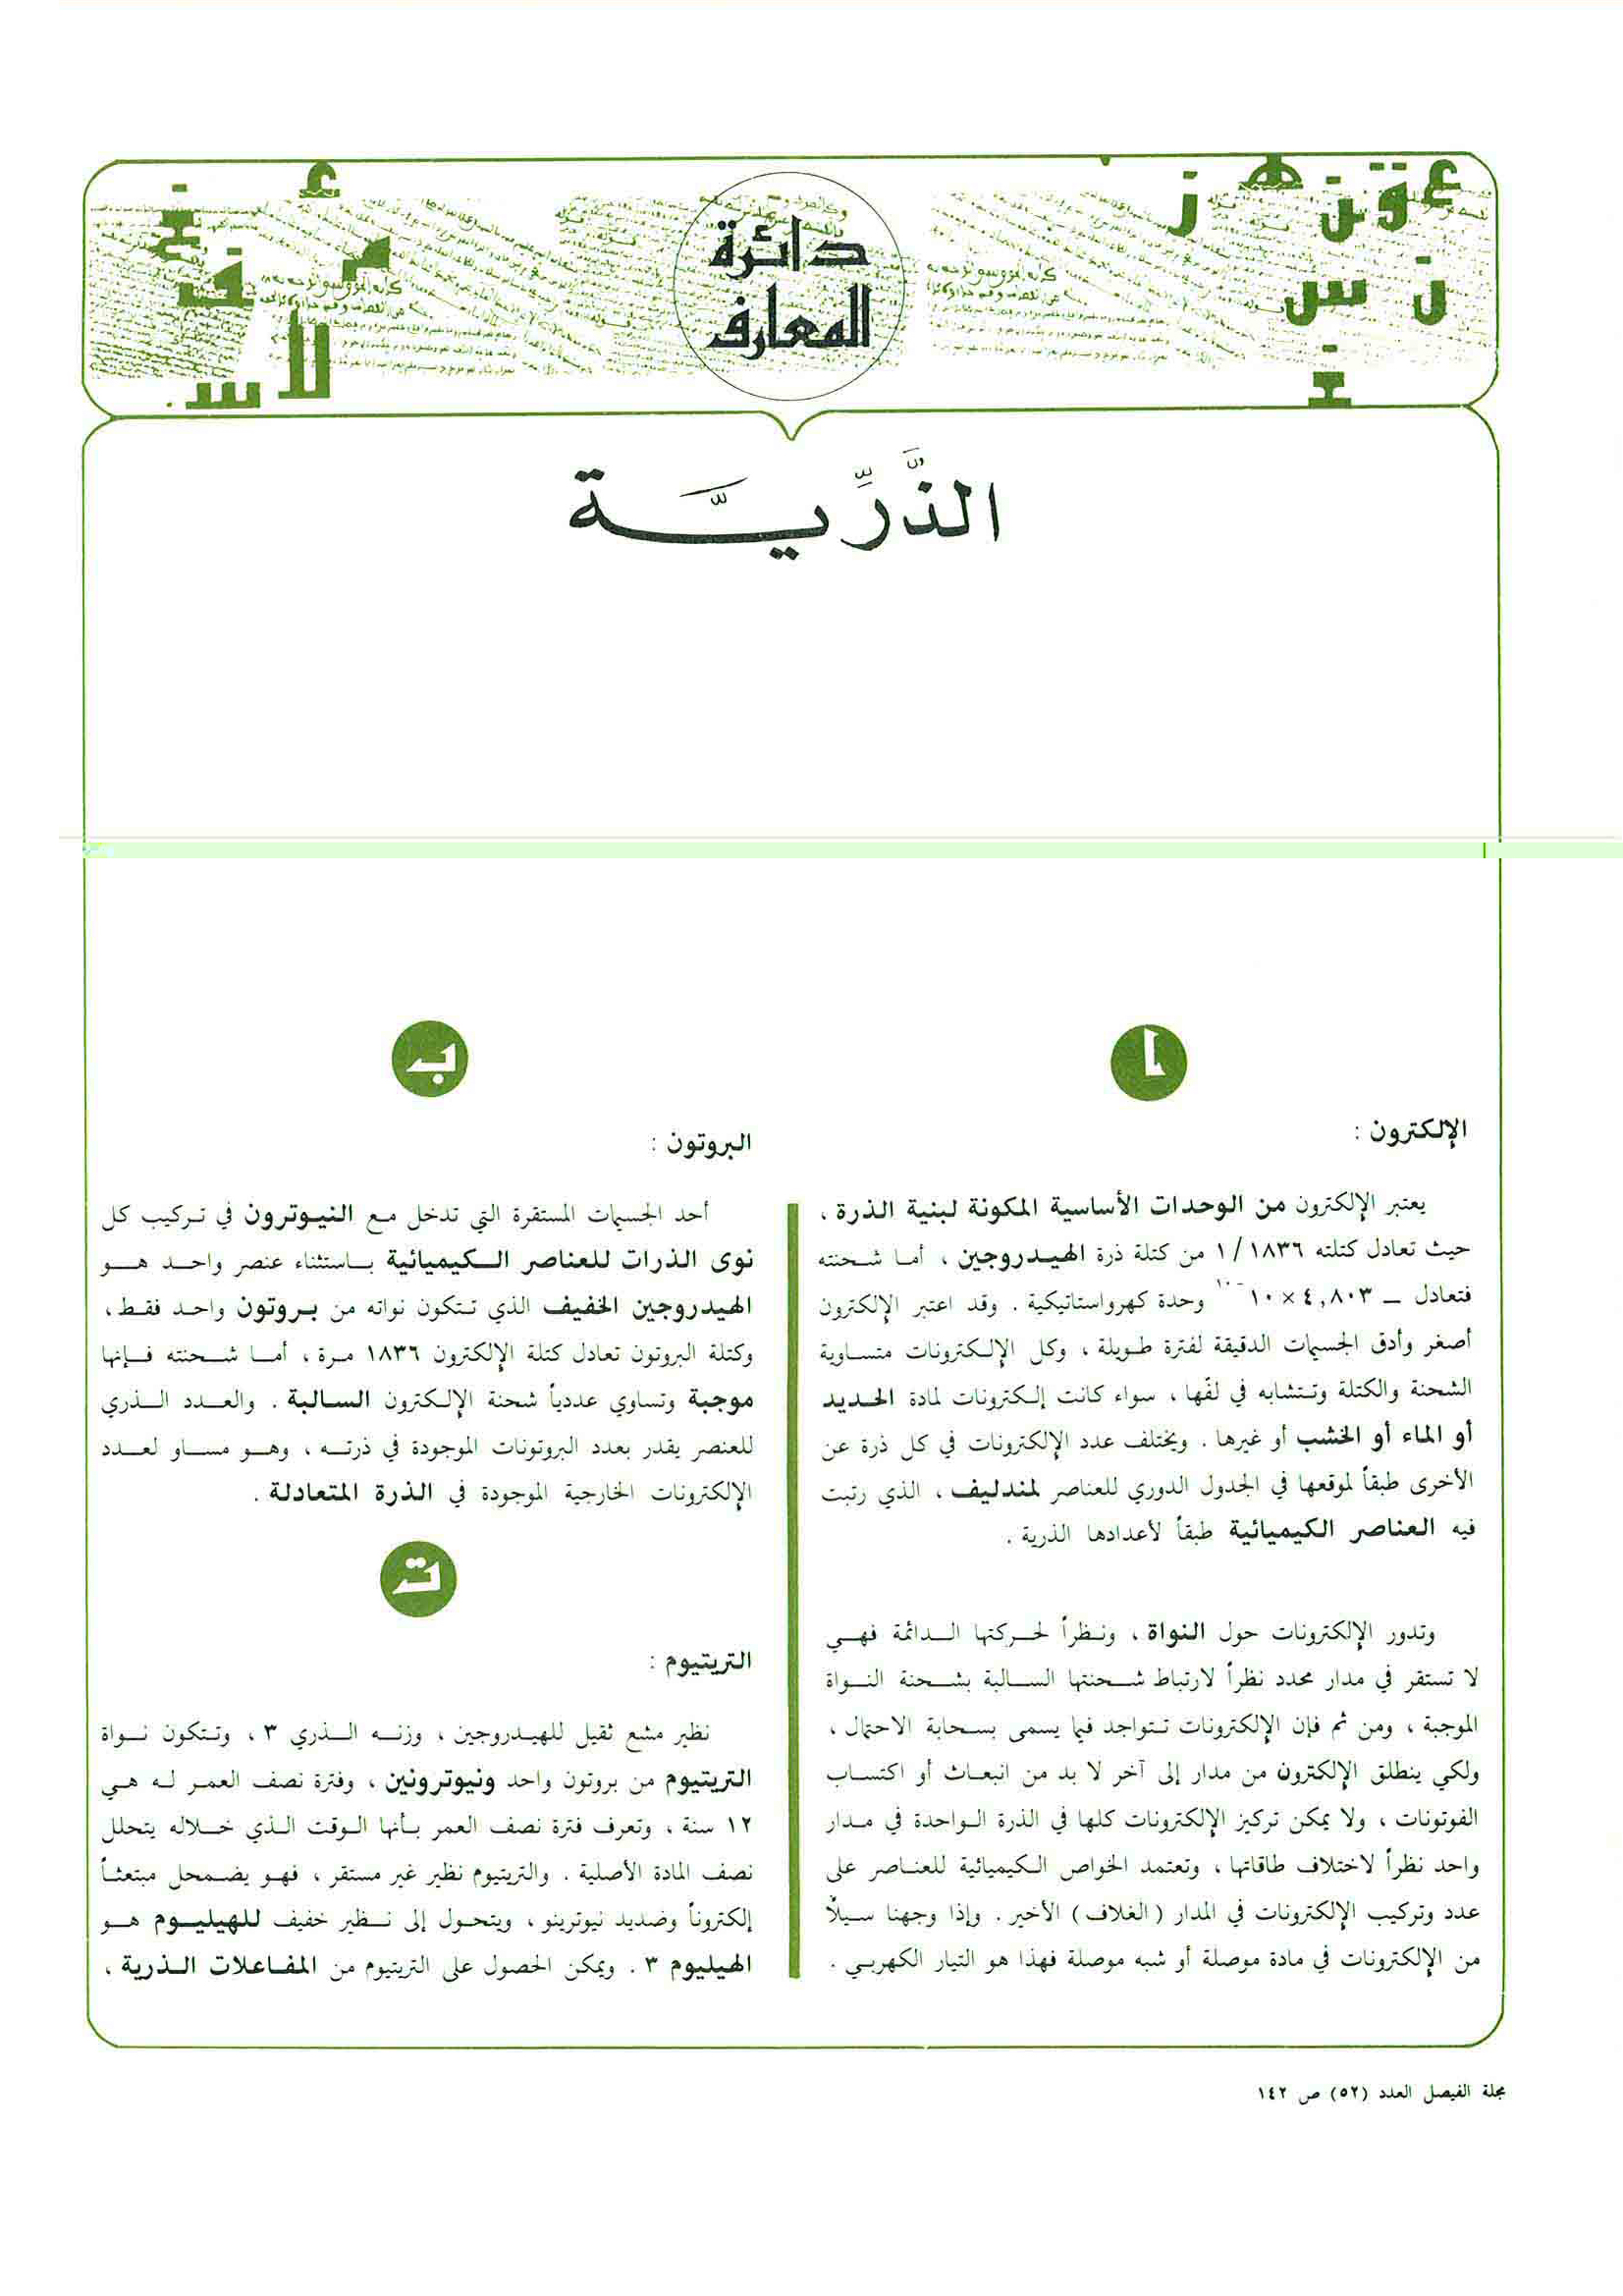 دائرة
المعارف
الذَّرِّيَّة
ا
الإلكترون :
يعتبر الإلكترون من الوحدات الأساسية المكونة لبنية الذرة ،
حيث تعادل كتلته ١/١٨٣٦ من كتلة ذرة الهيدروجين ، أما شحنته
فتعادل ــ ٤,٨٠٣ × ١٠⁻¹⁰ وحدة كهرواستاتيكية . وقد اعتبر الإلكترون
أصغر وأدق الجسيمات الدقيقة لفترة طويلة ، وكل الإلكترونات متساوية
الشحنة والكتلة وتتشابه في لفّها ، سواء كانت إلكترونات لمادة الحديد
أو الماء أو الخشب أو غيرها . ويختلف عدد الإلكترونات في كل ذرة عن
الأخرى طبقاً لموقعها في الجدول الدوري للعناصر لمندليف ، الذي رتبت
فيه العناصر الكيميائية طبقاً لأعدادها الذرية .
وتدور الإلكترونات حول النواة ، ونظراً لحركتها الدائمة فهي
لا تستقر في مدار محدد نظراً لارتباط شحنتها السالبة بشحنة النواة
الموجبة ، ومن ثم فإن الإلكترونات تتواجد فيما يسمى بسحابة الاحتمال ،
ولكي ينطلق الإلكترون من مدار إلى آخر لا بد من انبعاث أو اكتساب
الفوتونات ، ولا يمكن تركيز الإلكترونات كلها في الذرة الواحدة في مدار
واحد نظراً لاختلاف طاقاتها ، وتعتمد الخواص الكيميائية للعناصر على
عدد وتركيب الإلكترونات في المدار ( الغلاف ) الأخير . وإذا وجهنا سيلاً
من الإلكترونات في مادة موصلة أو شبه موصلة فهذا هو التيار الكهربي .
ب
البروتون :
أحد الجسيمات المستقرة التي تدخل مع النيوترون في تركيب كل
نوى الذرات للعناصر الكيميائية باستثناء عنصر واحد هو
الهيدروجين الخفيف الذي تتكون نواته من بروتون واحد فقط ،
وكتلة البروتون تعادل كتلة الإلكترون ١٨٣٦ مرة ، أما شحنته فإنها
موجبة وتساوي عددياً شحنة الإلكترون السالبة . والعدد الذري
للعنصر يقدر بعدد البروتونات الموجودة في ذرته ، وهو مساو لعدد
الإلكترونات الخارجية الموجودة في الذرة المتعادلة .
ت
التريتيوم :
نظير مشع ثقيل للهيدروجين ، وزنه الذري ٣ ، وتتكون نواة
التريتيوم من بروتون واحد ونيوترونين ، وفترة نصف العمر له هي
١٢ سنة ، وتعرف فترة نصف العمر بأنها الوقت الذي خلاله يتحلل
نصف المادة الأصلية . والتريتيوم نظير غير مستقر ، فهو يضمحل مبتعثاً
إلكتروناً وضديد نيوترينو ، ويتحول إلى نظير خفيف للهيليوم هو
الهيليوم ٣ . ويمكن الحصول على التريتيوم من المفاعلات الذرية ،
مجلة الفيصل العدد (٥٢) ص ١٤٢